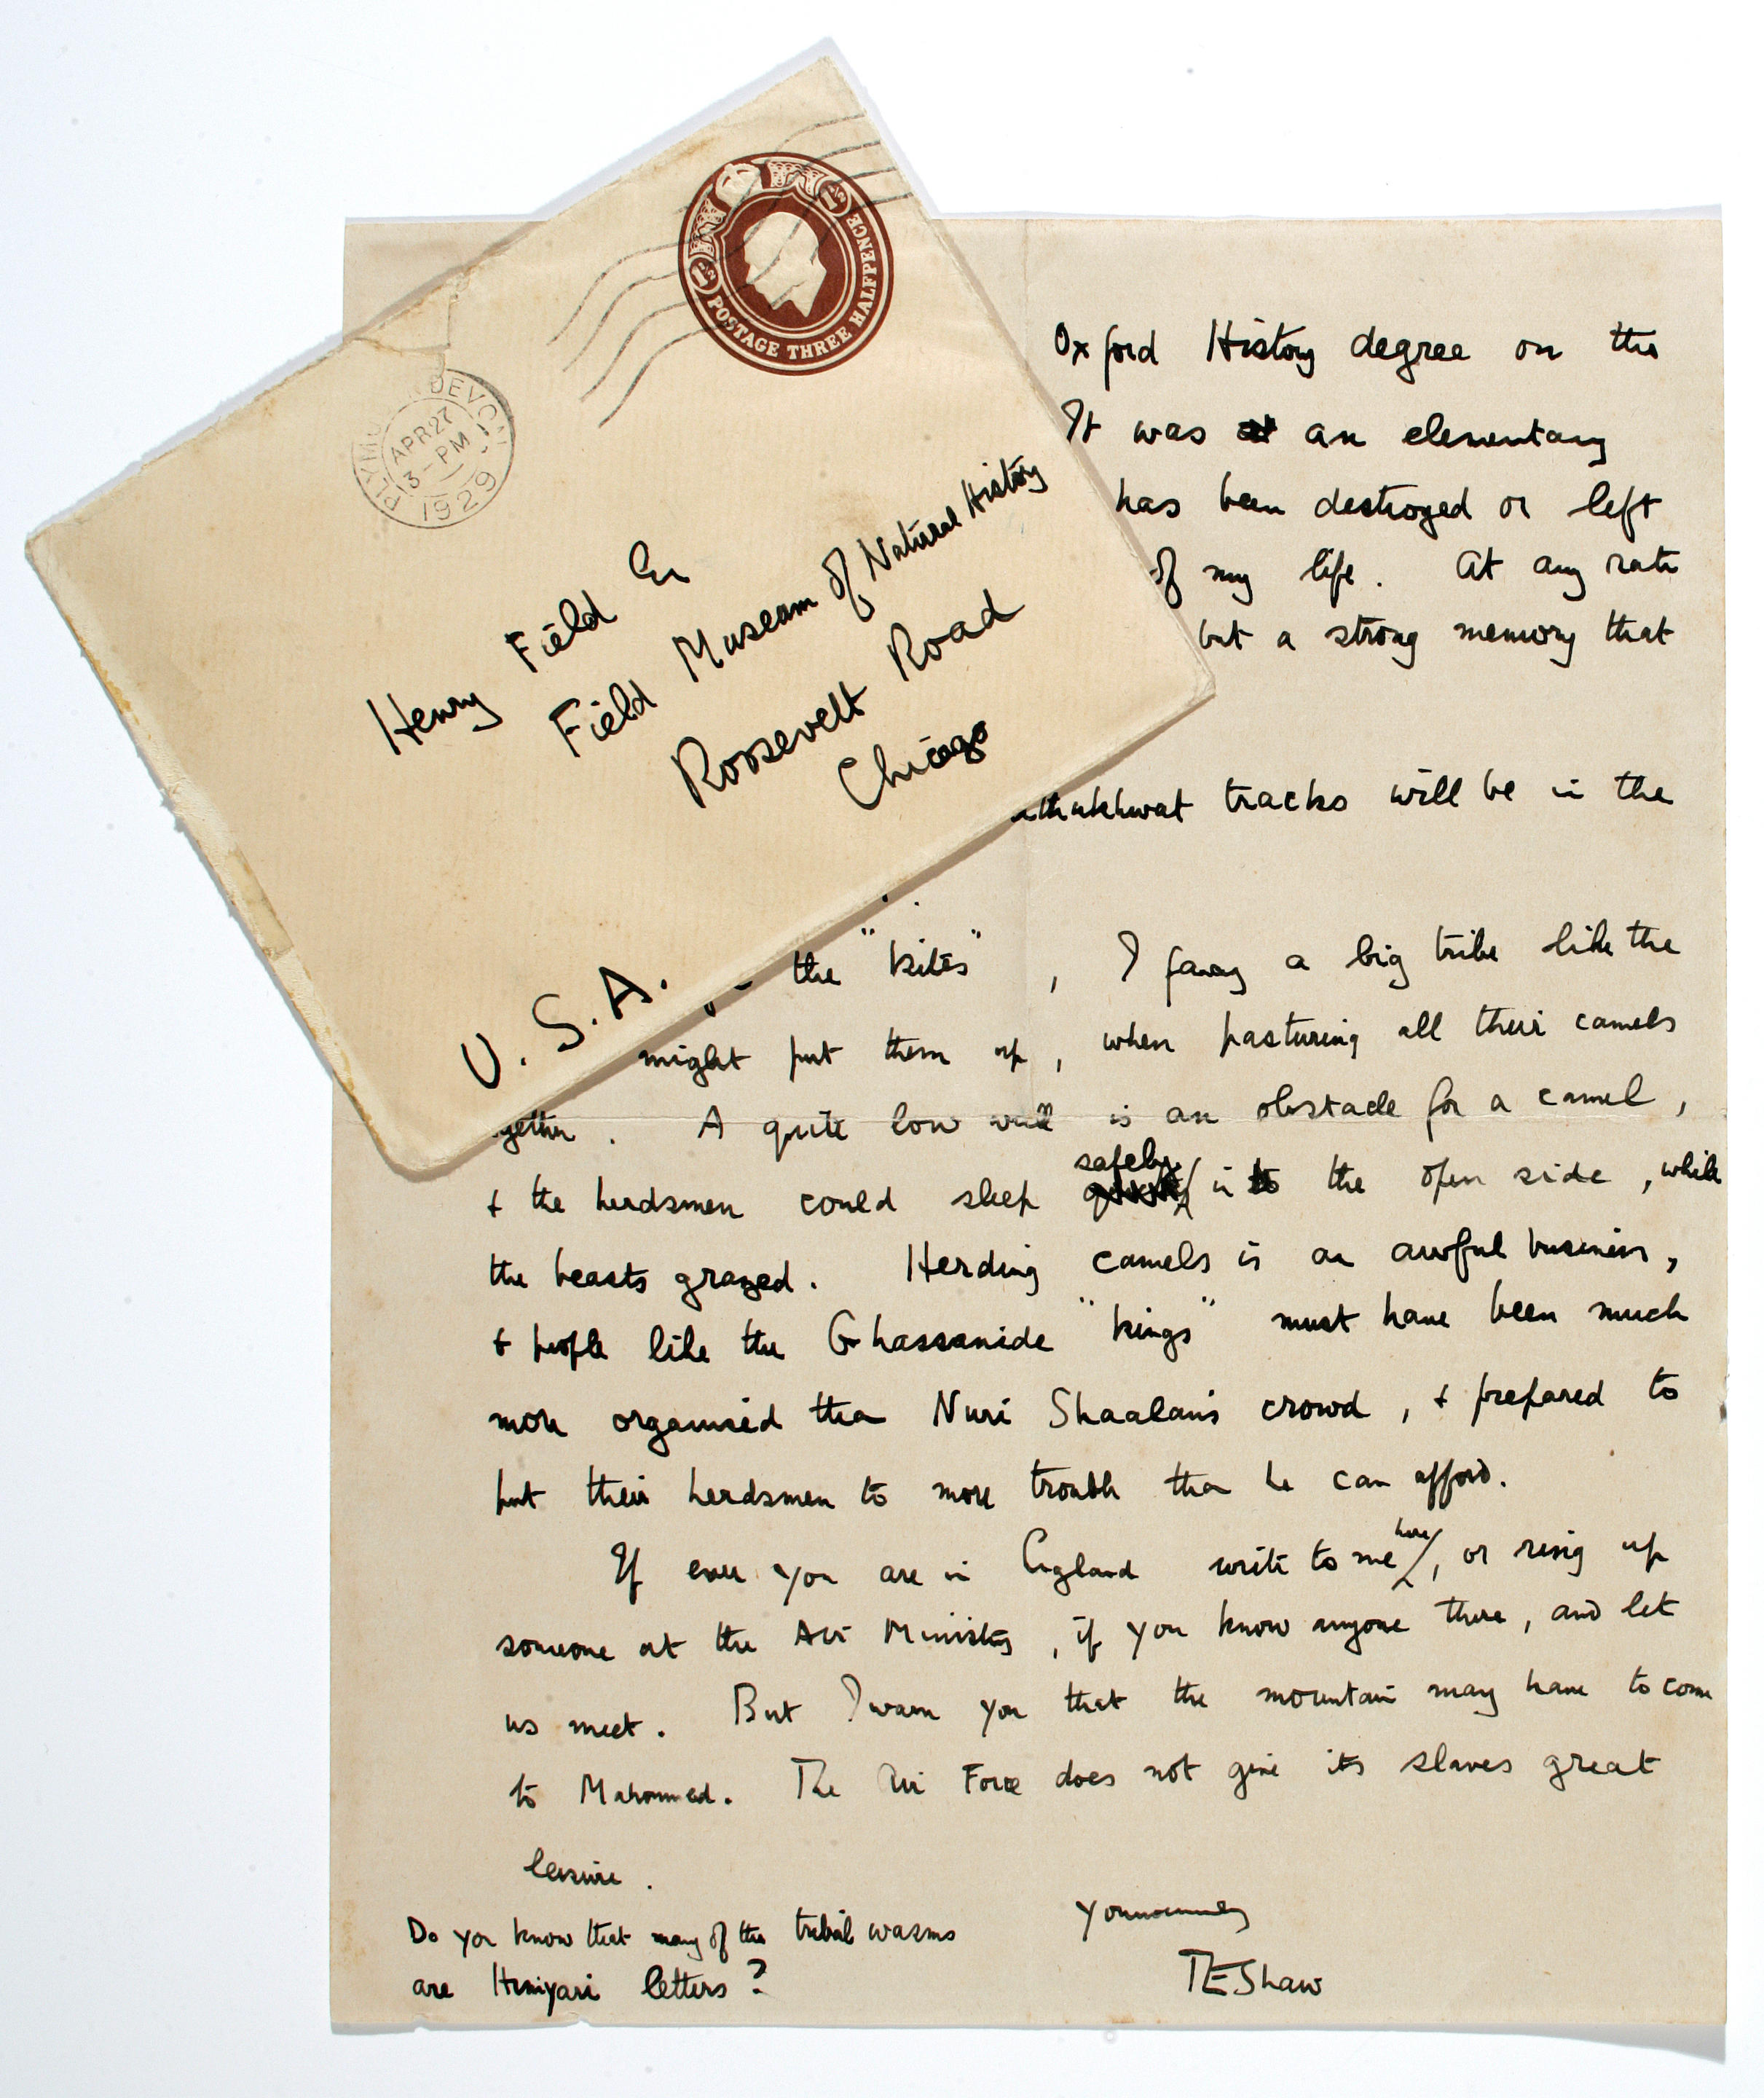 POSTAGE THREE HALFPENCE
DEVON
APR 27
3-PM
1929
Henry Field
Field Museum of Natural History
Roosevelt Road
Chicago
U.S.A.
Oxford History degree on the
It was an elementary
has been destroyed or left
of my life. At any rate
but a strong memory that
tracks will be in the
the "kites", I fancy a big tribe like the
might put them up, when pasturing all their camels
A quite low wall is an obstacle for a camel,
+ the herdsmen could sleep safely in the open side, while
the beasts grazed. Herding camels is an awful business,
+ people like the Ghassanide "kings" must have been much
more organised than Nuri Shaalan's crowd, + prepared to
put their herdsmen to more trouble than he can afford.
If ever you are in England write to me here, or ring up
someone at the Air Ministry, if you know anyone there, and let
us meet. But I warn you that the mountain may have to come
to Mahommed. The Air Force does not give its slaves great
leisure.
Yours sincerely
TEShaw
Do you know that many of the tribal wasms
are Himyari letters?